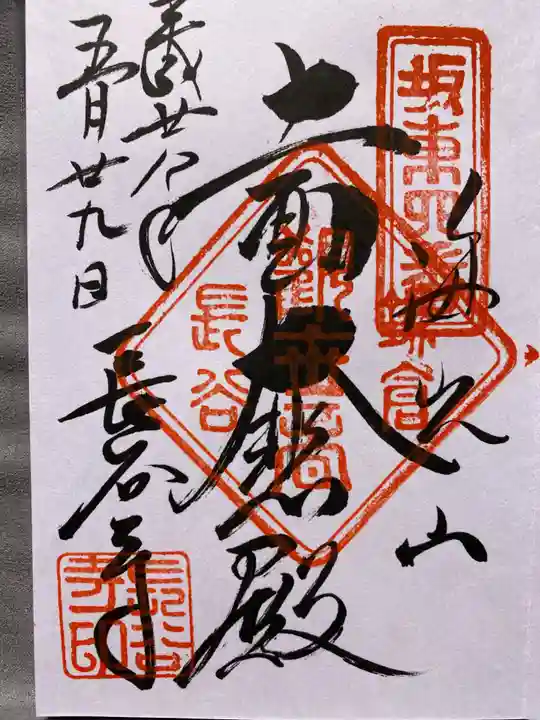 坂東四番
海光山
鎌倉
観世音
長谷
十一面大悲殿
廿八年
五月廿九日
長谷寺
長谷
寺印